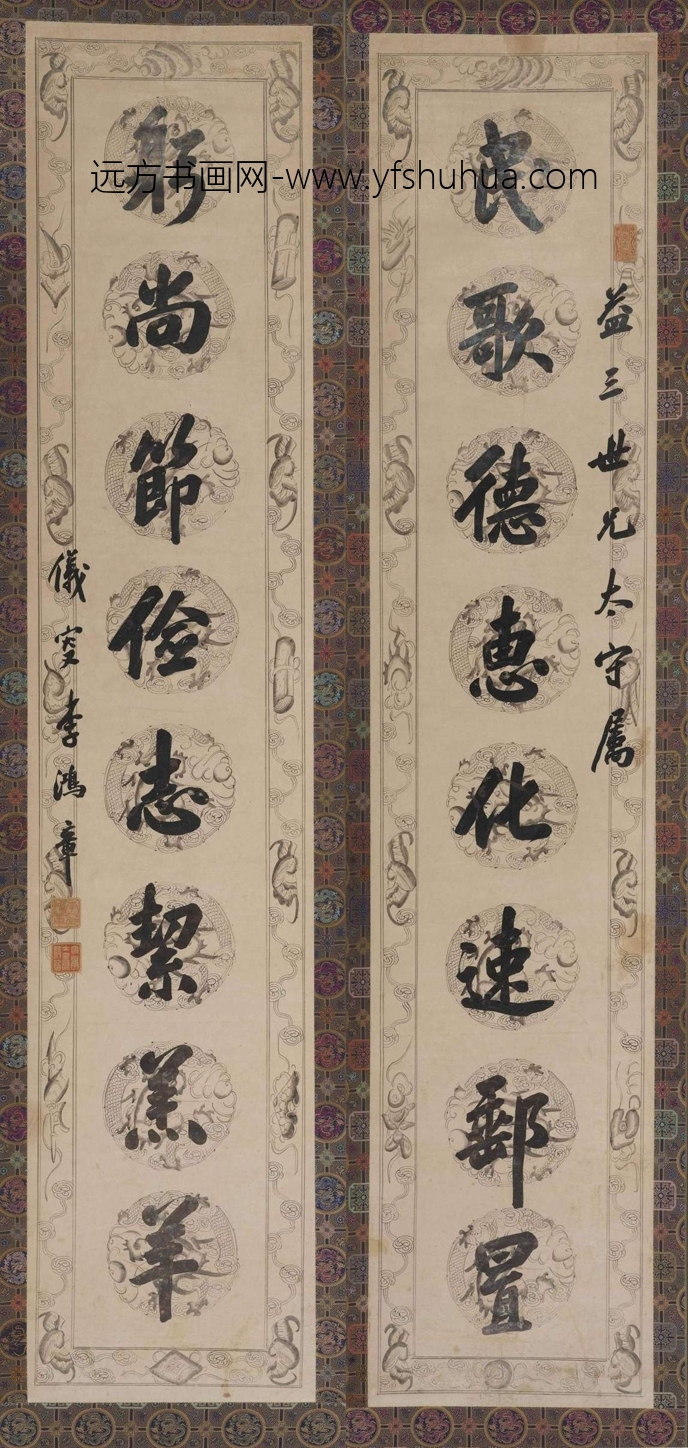 远方书画网-www.yfshuhua.com
益三世兄太守属
民歌德惠化速郵置
躬尚節俭志絜羔羊
儀叟李鴻章